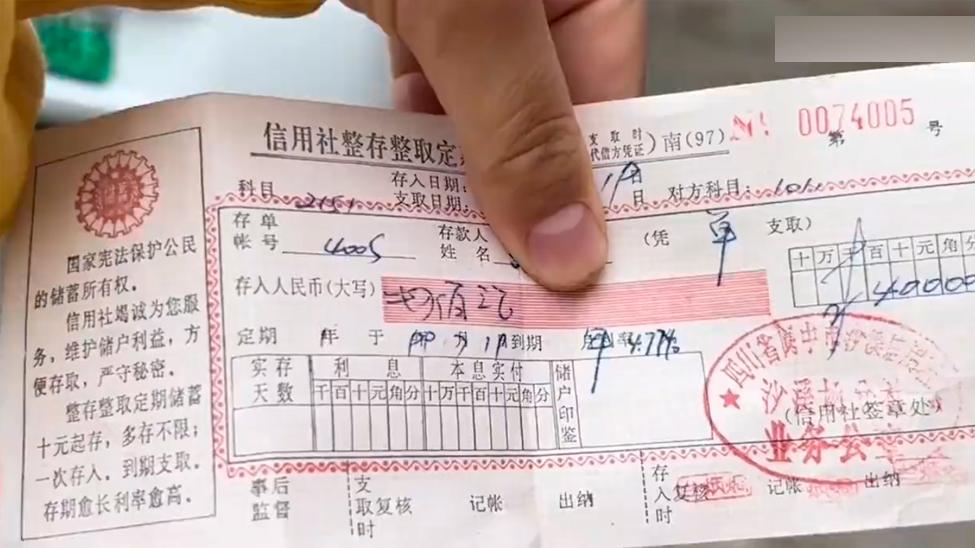 信用社整存整取定
支取时
代借方凭证
南(97)
№ 0074005
第 号
科目 2151
存入日期: 日
支取日期: 日
对方科目: 101
存单
帐号 4005
存款人
姓名
(凭 单 支取)
十万千百十元角分
40000
存入人民币(大写) 肆佰元
定期 年 于 月 日到期 月利率 4.77‰
实存天数
利息
千百十元角分
本息实付
十万千百十元角分
储户印鉴
(信用社签章处)
沙溪
业务公章
事后监督
支取时
复核
记帐
出纳
存入时
复核
记帐
出纳
国家宪法保护公民
的储蓄所有权。
信用社竭诚为您服
务,维护储户利益,方
便存取,严守秘密。
整存整取定期储蓄
十元起存,多存不限;
一次存入。到期支取。
存期愈长利率愈高。